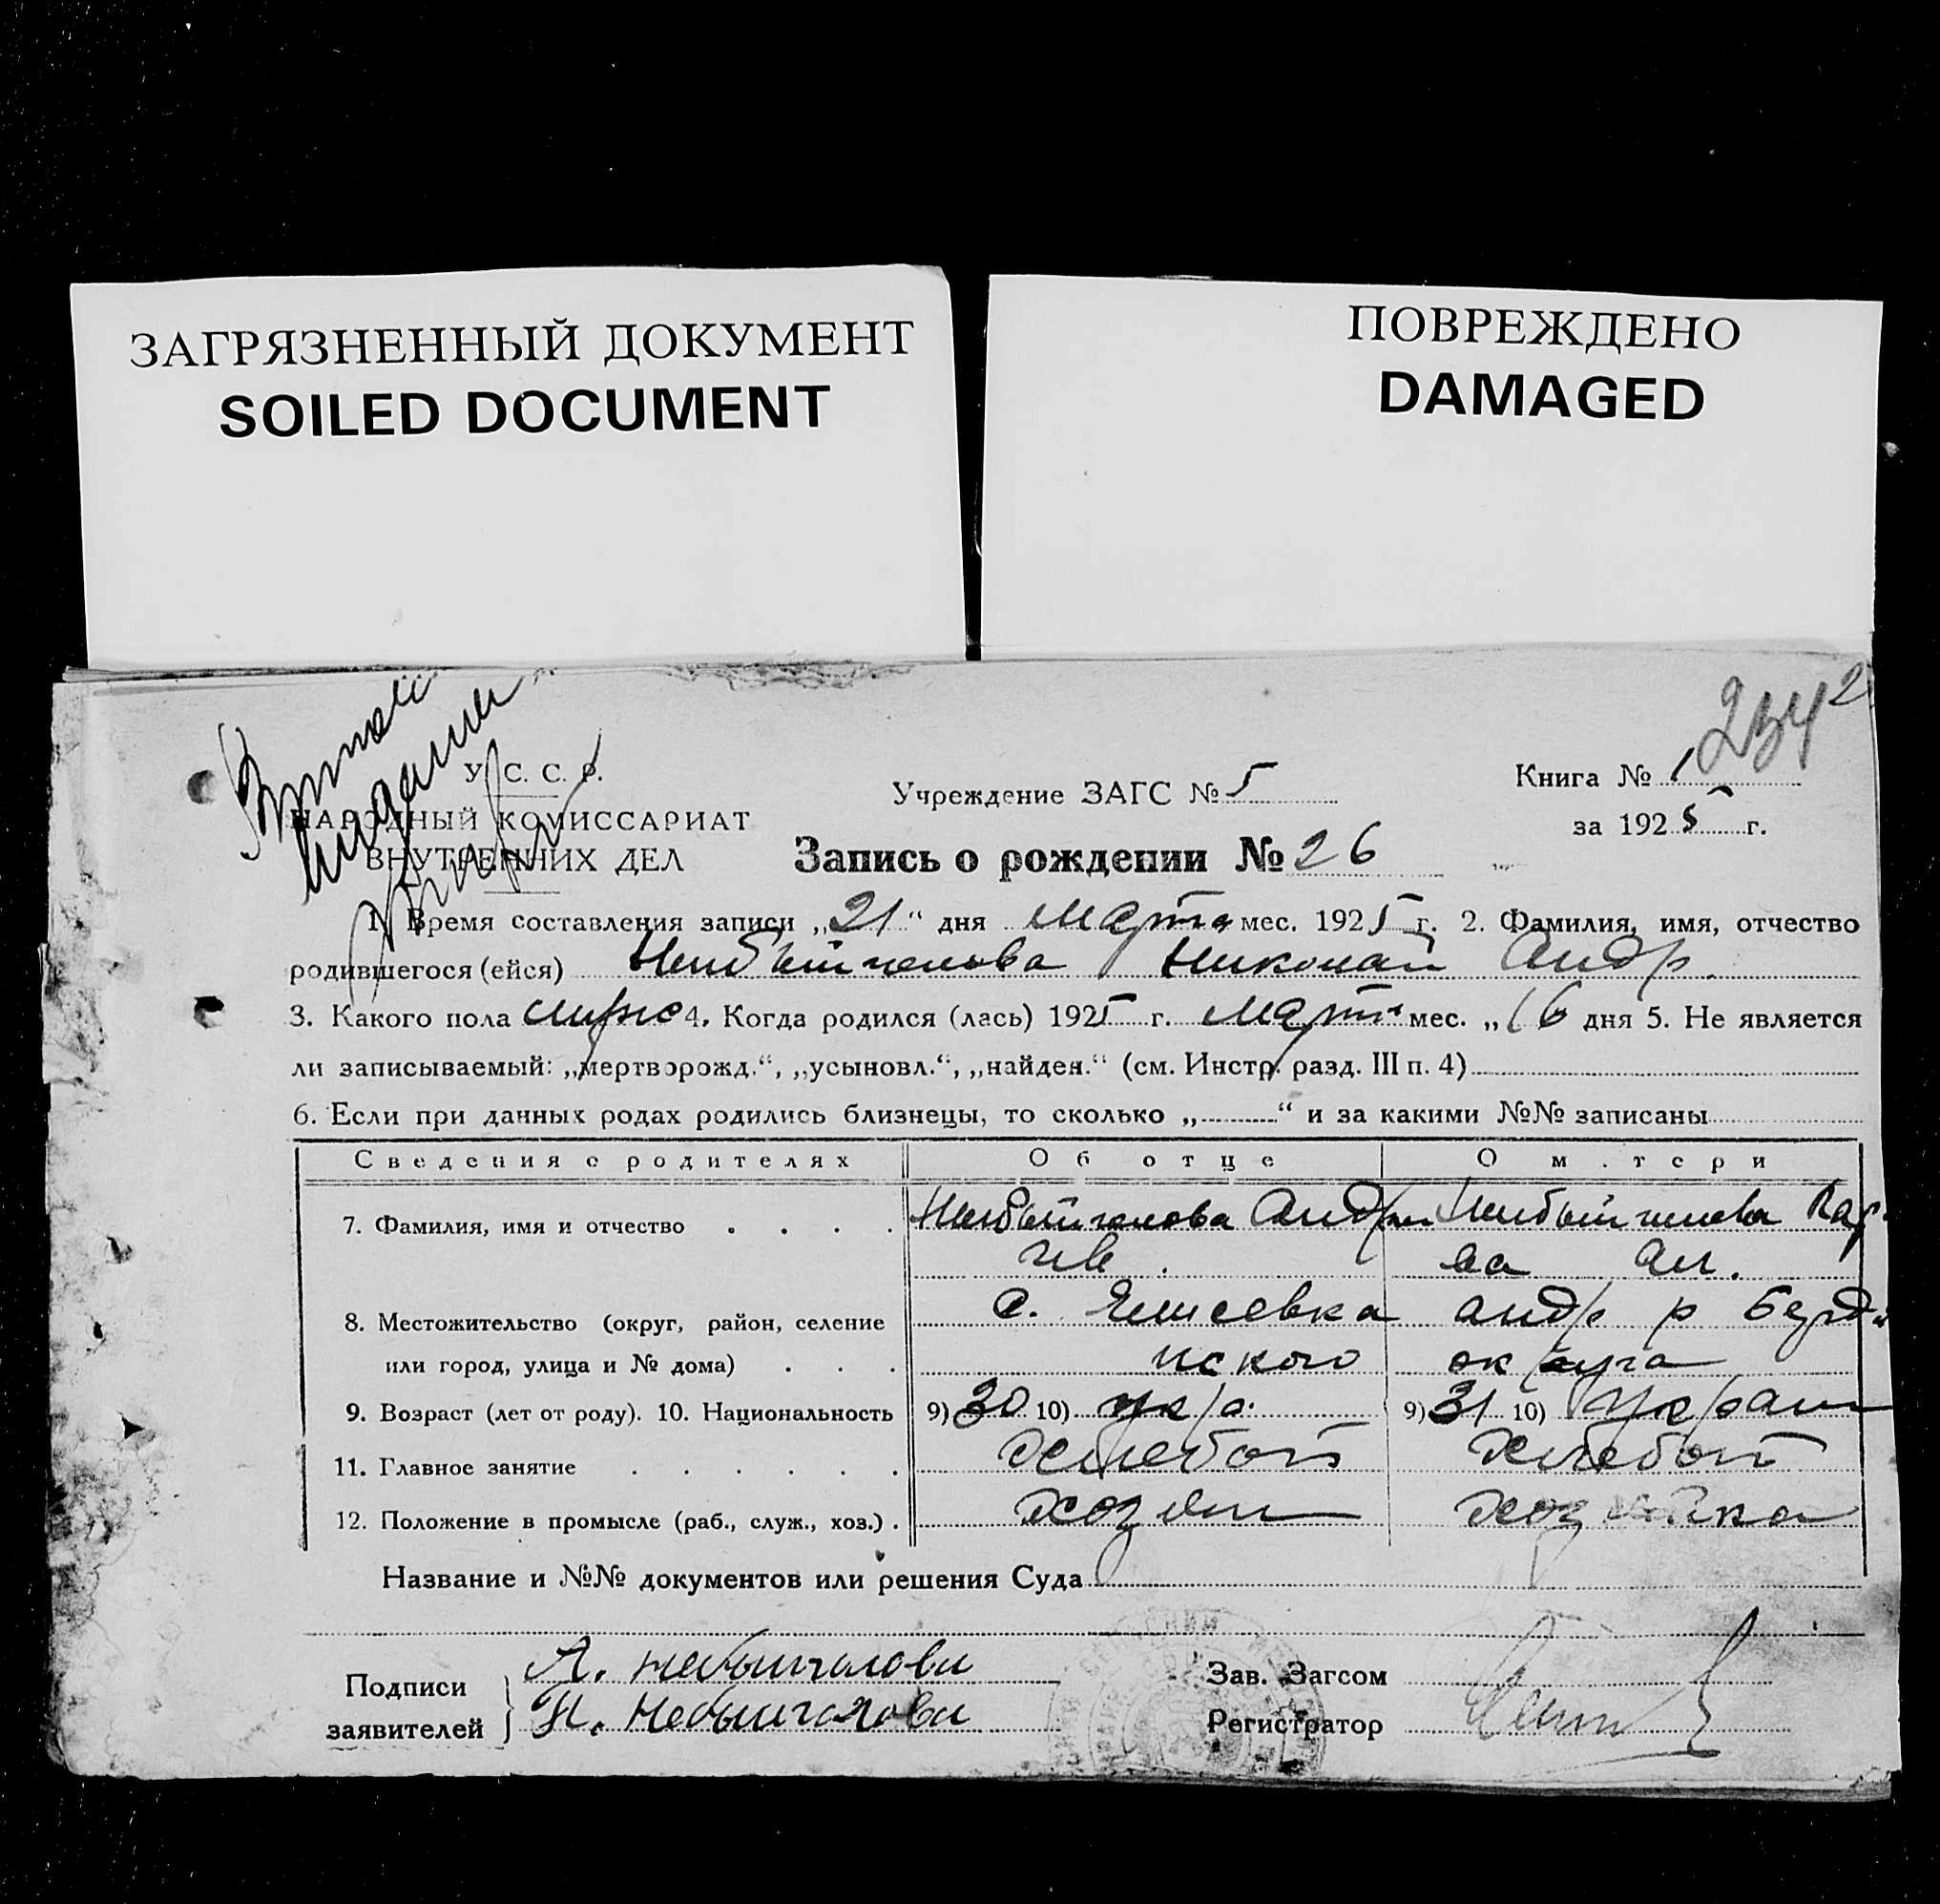 ЗАГРЯЗНЕННЫЙ ДОКУМЕНТ
SOILED DOCUMENT
ПОВРЕЖДЕНО
DAMAGED
2
У. С. С. Р.
НАРОДНЫЙ КОМИССАРИАТ
ВНУТРЕННИХ ДЕЛ
Учреждение ЗАГС № 5
Книга № 1
за 1925 г.
Запись о рождении № 26
1. Время составления записи „21“ дня марта мес. 1925 г. 2. Фамилия, имя, отчество
родившегося (ейся) Николай Андр.
3. Какого пола 4. Когда родился (лась) 1925 г. марта мес. „16 дня 5. Не является
ли записываемый: „мертворожд.“, „усыновл.“, „найден.“ (см. Инстр. разд. III п. 4)
6. Если при данных родах родились близнецы, то сколько „ “ и за какими №№ записаны
Сведения о родителях Об отце О матери
7. Фамилия, имя и отчество
8. Местожительство (округ, район, селение с. Елисеевка Андр р Берд
или город, улица и № дома) нского округа
9. Возраст (лет от роду). 10. Национальность 9) 30 10) укр. 9) 31 10) украин
11. Главное занятие Хлебоп Хлебоп
12. Положение в промысле (раб., служ., хоз.) хозяин хозяйка
Название и №№ документов или решения Суда
Подписи
заявителей
А. Небыйголова
Н. Небыйголова
Зав. Загсом
Регистратор